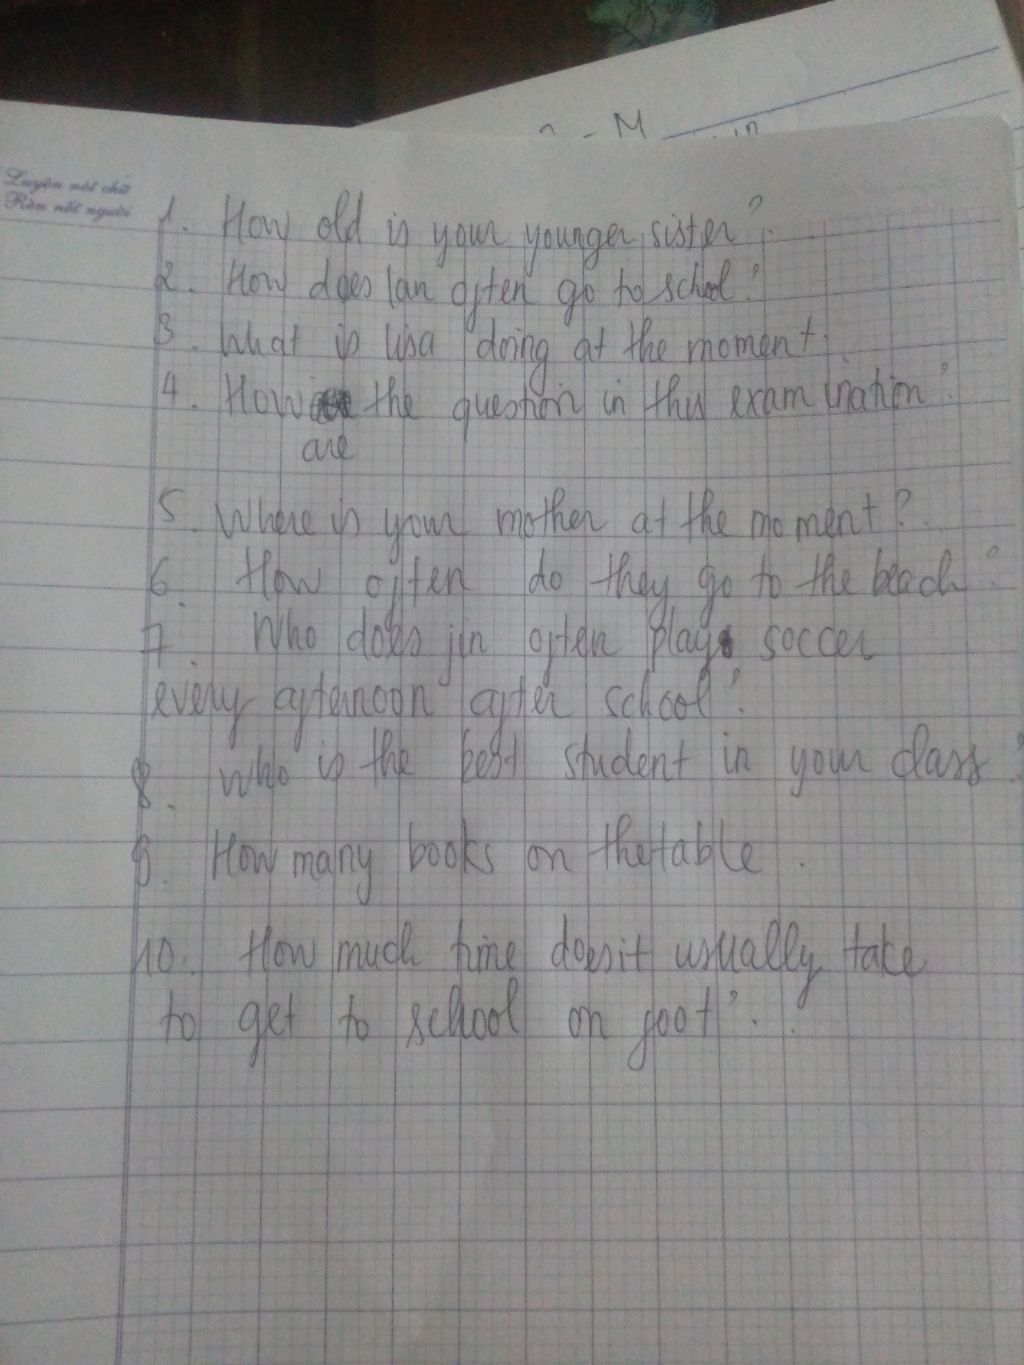 Luyện nét chữ
Rèn nết người
1. How old is your younger sister?
2. How does lan often go to school?
3. What is lisa doing at the moment.
4. How the question in this examination?
are
5. Where is your mother at the moment?
6. How often do they go to the beach?
7. Who does jin often play soccer
every afternoon after school?
8. Who is the best student in your class?
9. How many books on the table.
10. How much time does it usually take
to get to school on foot?